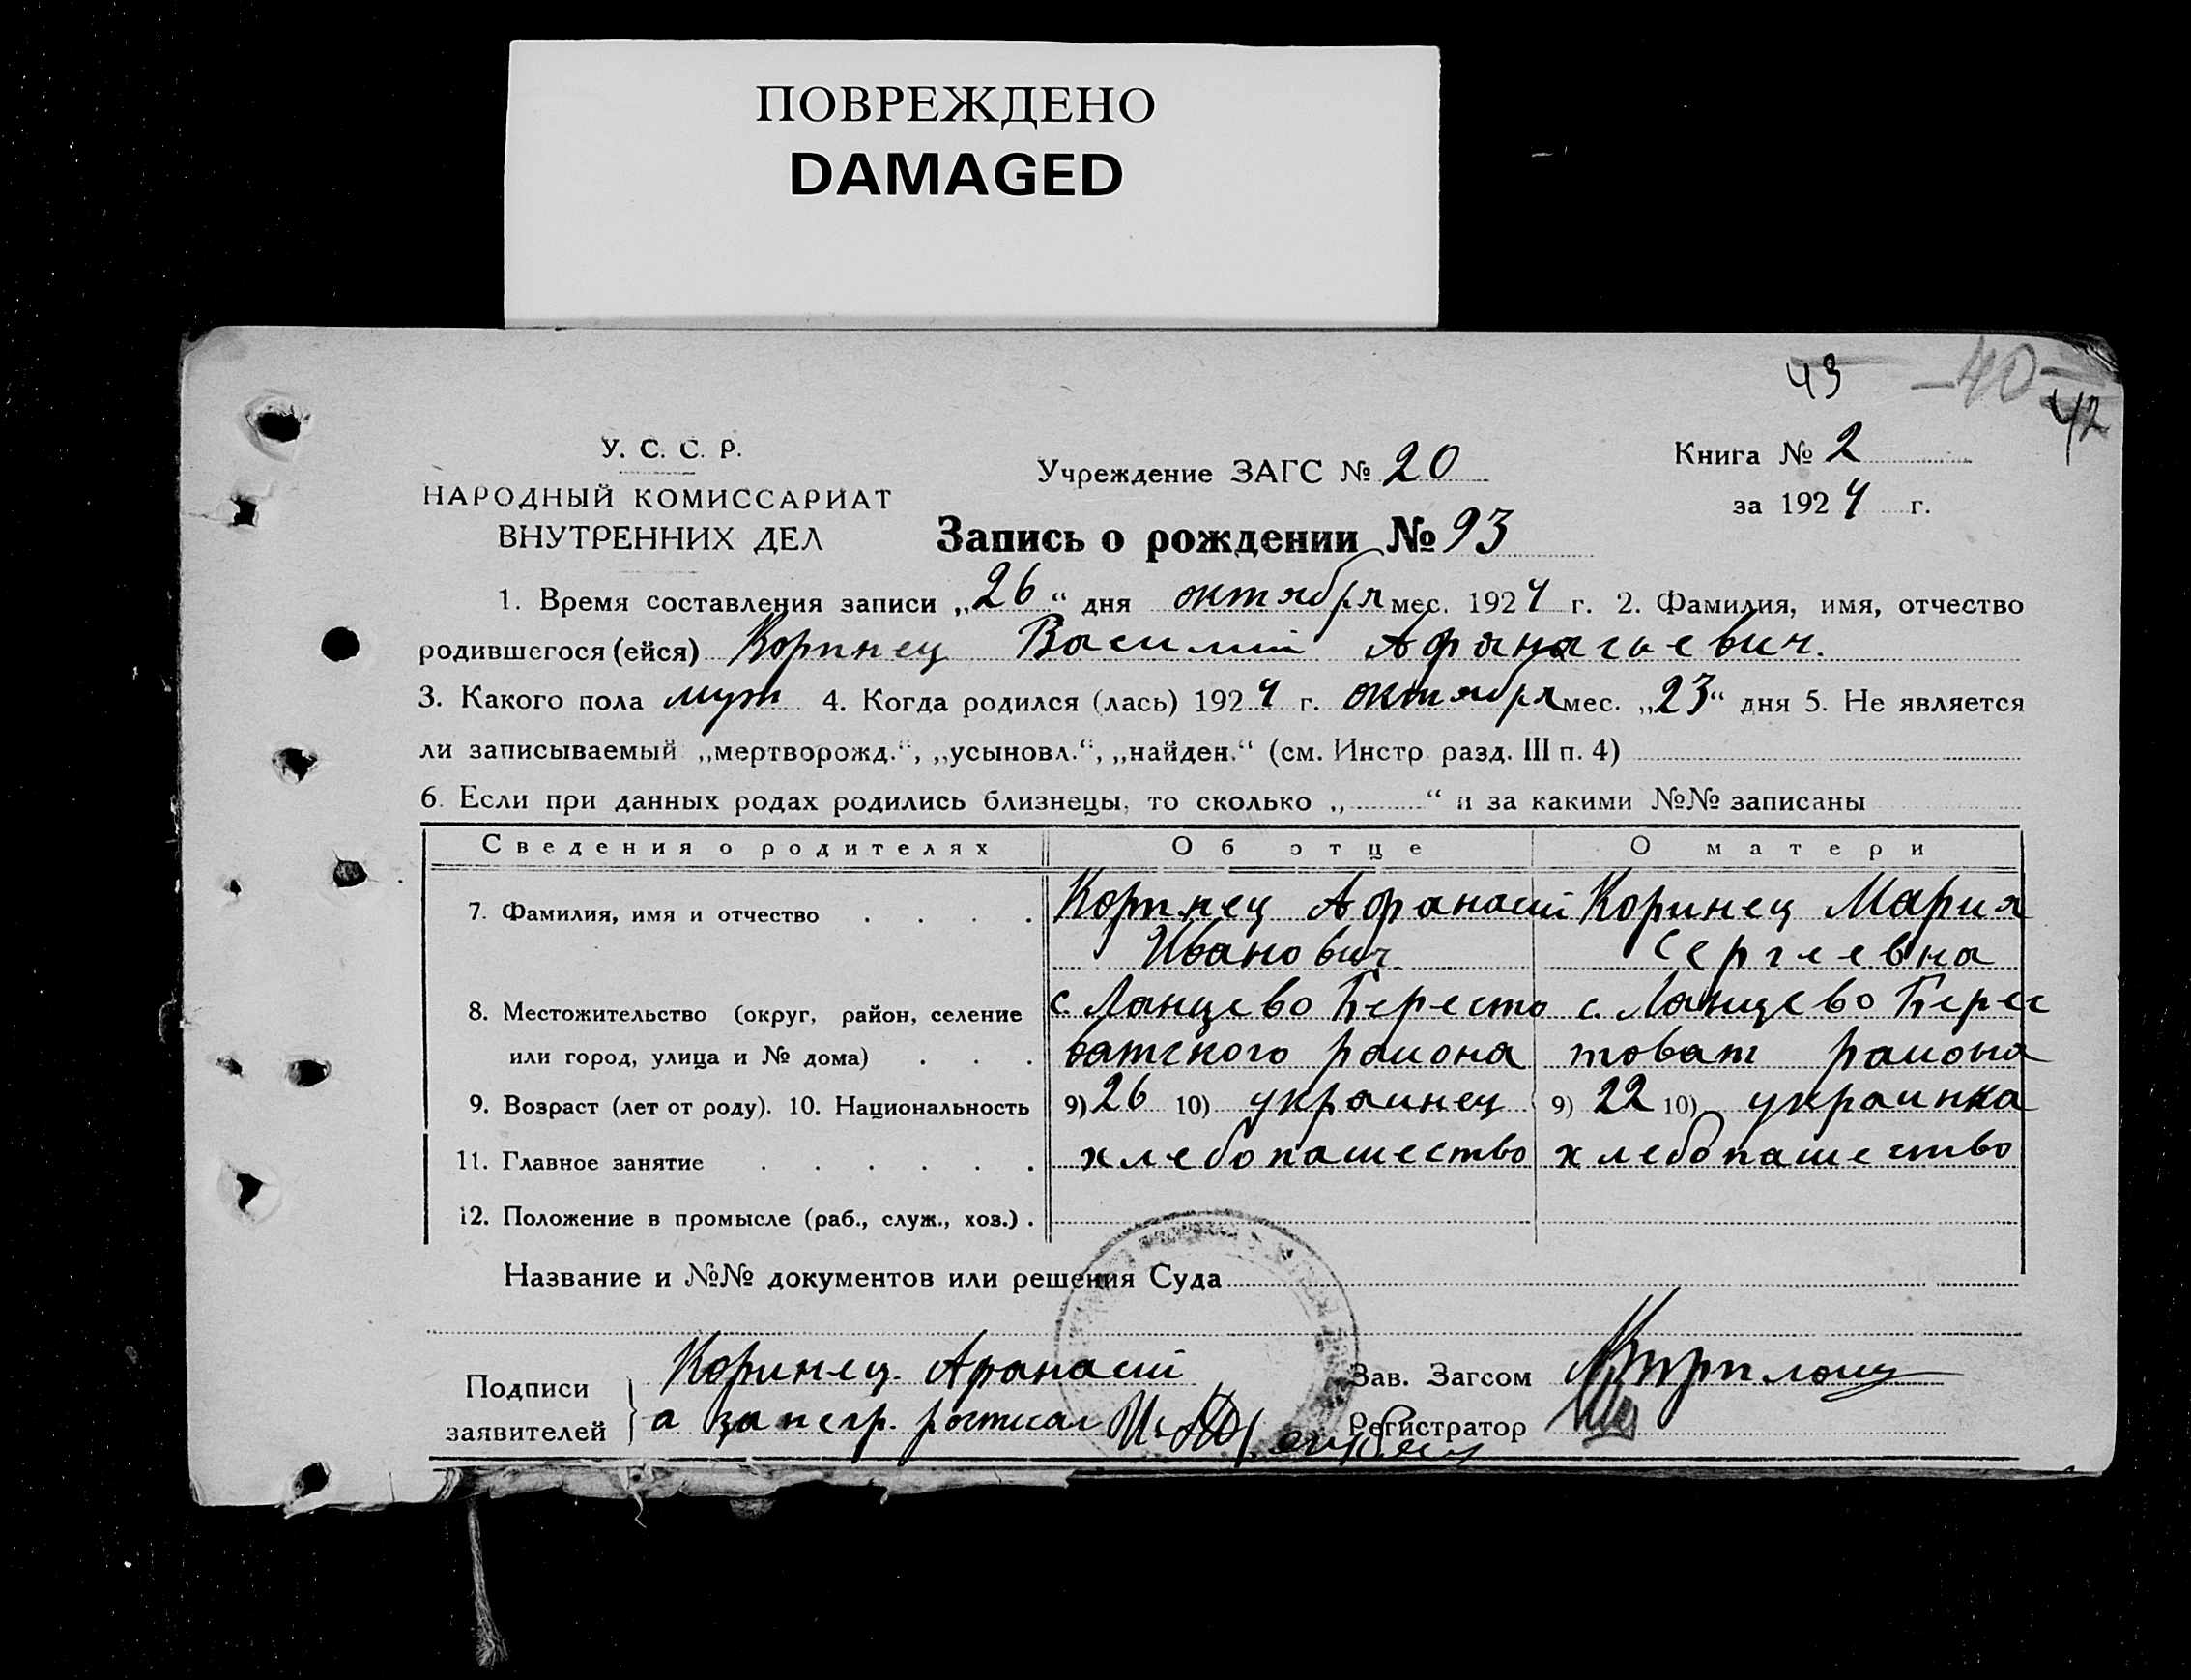 ПОВРЕЖДЕНО
DAMAGED
43 —40— 42
У. С. С. Р.
НАРОДНЫЙ КОМИССАРИАТ
ВНУТРЕННИХ ДЕЛ
Учреждение ЗАГС № 20
Книга № 2
за 1924 г.
Запись о рождении № 93
1. Время составления записи „26“ дня октября мес. 1924 г. 2. Фамилия, имя, отчество
родившегося (ейся) Коринец Василий Афанасьевич.
3. Какого пола муж 4. Когда родился (лась) 1924 г. октября мес. „23“ дня 5. Не является
ли записываемый „мертворожд.“, „усыновл.“, „найден.“ (см. Инстр. разд. III п. 4)
6. Если при данных родах родились близнецы, то сколько „ “ и за какими №№ записаны
Сведения о родителях Об отце О матери
7. Фамилия, имя и отчество . . . . Коринец Афанасий Коринец Мария
Иванович Сергеевна
8. Местожительство (округ, район, селение с. Ланцево Бересто с. Ланцево Берес
или город, улица и № дома) . . . ватского района товат района
9. Возраст (лет от роду). 10. Национальность 9) 26 10) украинец 9) 22 10) украинка
11. Главное занятие . . . . . . хлебопашество хлебопашество
12. Положение в промысле (раб., служ., хоз.) .
Название и №№ документов или решения Суда
Подписи
заявителей
Коринец Афанасий
а за негр.
Зав. Загсом
Регистратор